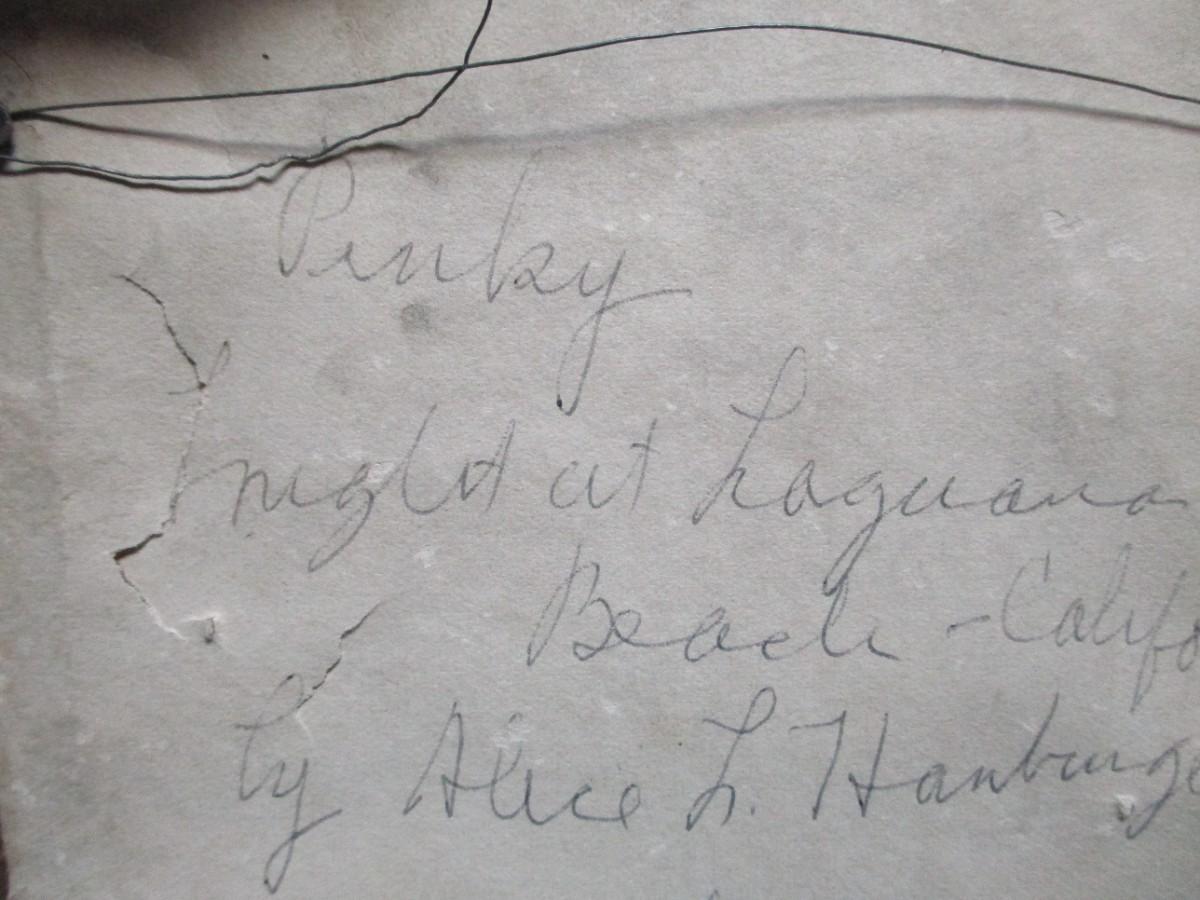 Pinky
night at Laguana
Beach - Califo
by Alice L. Hanburge